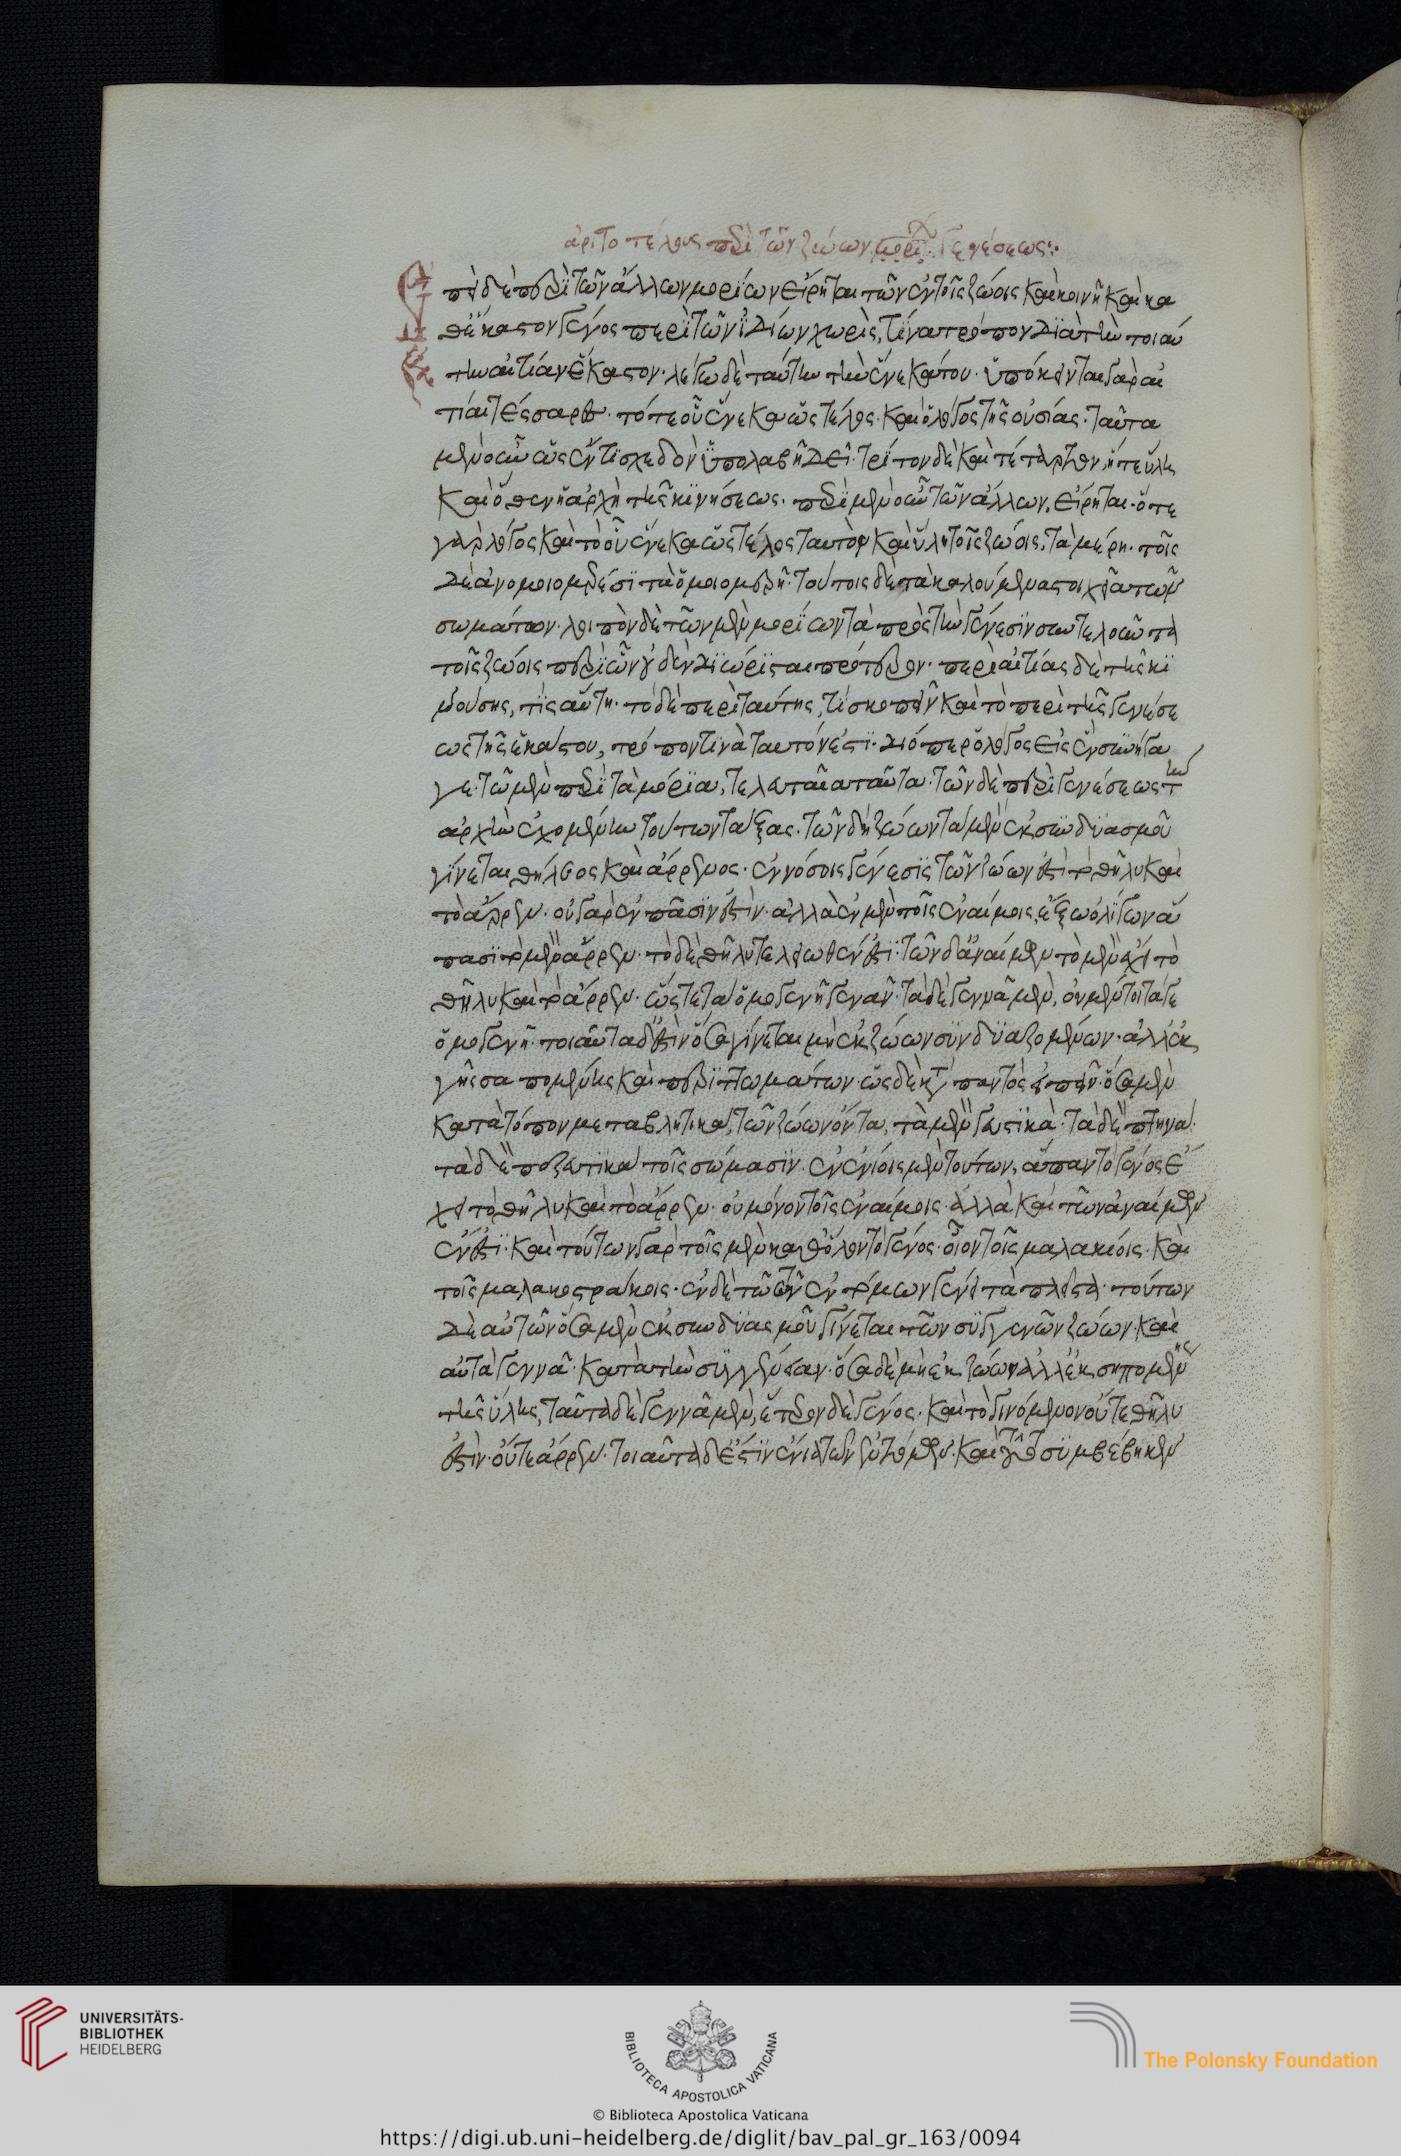 ἀριστοτέλους περὶ τῶν ζώων μορί γενέσεως:
Ἐπεὶ δὲ περὶ τῶν ἄλλων μορίων εἴρηται τῶν ἐν τοῖς ζώοις καὶ κοινῆ καὶ κα
θέκαστον γένος περὶ τῶν ἰδίων χωρὶς, τίνα τρόπον διὰ τὴν τοιαύ
την αἰτίαν ἕκαστον· λέγω δὲ ταύτην τὴν ἕνεκά του· ὑπόκεινται γὰρ αἰ
τίαι τέσσαρες· τό τε οὗ ἕνεκα ὡς τέλος· καὶ ὁ λόγος τῆς οὐσίας· ταῦτα
μὲν οὖν ὡς ἕν τι σχεδὸν ὑπολαβῆ δεῖ· τρίτον δὲ καὶ τέταρτον, ἥ τε ὕλη
καὶ ὅθεν ἡ ἀρχὴ τῆς κινήσεως· περὶ μὲν οὖν τῶν ἄλλων, εἴρηται· ὅ τε
γὰρ λόγος καὶ τὸ οὗ ἕνεκα ὡς τέλος ταυτὸν καὶ ὕλη τοῖς ζώοις, τὰ μέρη· τοῖς
δὲ ἀνομοιομερέσι τὰ ὁμοιομερῆ· τούτοις δὲ τὰ καλούμενα στοιχεῖα τῶν
σωμάτων· λοιπὸν δὲ τῶν μὲν μορίων τὰ πρὸς τὴν γένεσιν συντελοῦντα
τοῖς ζώοις περὶ ὧν οὐδὲν διώρισται πρότερον· περὶ αἰτίας δὲ τῆς κι
νούσης, τίς αὕτη· τὸ δὲ περὶ ταύτης, τι σκοπεῖν καὶ τὸ περὶ τῆς γενέσε
ως τῆς ἑκάστου, τρόπον τινὰ ταυτόν ἐστι· διόπερ ὁ λόγος εἰς ἓν συνήγα
γε· τῶν μὲν περὶ τὰ μόρια, τελευταῖα ταῦτα· τῶν δὲ περὶ γενέσεως τὴν
ἀρχὴν ἐχομένην τούτων τάξας· τῶν δὴ ζώων τὰ μὲν ἐκ συνδυασμοῦ
γίνεται θήλεος καὶ ἄρρενος· ἐν ὅσοις γένεσις τῶν ζώων ἐστὶ τὸ θῆλυ καὶ
τὸ ἄρρεν· οὐ γὰρ ἐν πᾶσιν ἐστὶν· ἀλλὰ ἐν μὲν τοῖς ἐναίμοις, ἔξω ὀλίγων ἅ
πασι τὸ μὲν ἄρρεν· τὸ δὲ θῆλυ τελειωθέν ἐστι· τῶν δ' ἀναίμων τὰ μὲν ἔχει τὸ
θῆλυ καὶ τὸ ἄρρεν· ὥστε τὰ ὁμογενῆ γεννᾶν· τὰ δὲ γεννᾶ μὲν, οὐ μέντοι τά γε
ὁμογενῆ· τοιαῦτα δ' ἐστὶν ὅσα γίνεται μὴ ἐκ ζώων συνδυαζομένων· ἀλλ' ἐκ
γῆς σηπομένης καὶ περιττωμάτων· ὡς δὲ κατὰ παντὸς εἰπεῖν· ὅσα μὲν
κατὰ τόπον μεταβλητικὰ τῶν ζώων ὄντα, τὰ μὲν νευστικὰ· τὰ δὲ πτηνὰ·
τὰ δὲ πεζευτικὰ τοῖς σώμασιν· ἐν ἐνίοις μὲν τούτων, ἅπαν τὸ γένος ἔ
χει τὸ θῆλυ καὶ τὸ ἄρρεν· οὐ μόνον τοῖς ἐναίμοις· ἀλλὰ καὶ τῶν ἀναίμων
ἐν ἐστι· καὶ τούτων γὰρ τοῖς μὲν καθ' ὅλον τὸ γένος· οἷον τοῖς μαλακίοις· καὶ
τοῖς μαλακοστράκοις· ἐν δὲ τῶ τῶν ἐντόμων γένει τὰ πλεῖστα· τούτων
δὲ αὐτῶν ὅσα μὲν ἐκ συνδυασμοῦ γίνεται τῶν συγγενῶν ζώων· καὶ
αὐτὰ γεννᾶ· κατὰ τὴν συγγένειαν· ὅσα δὲ μὴ ἐκ ζώων ἀλλ' ἐκ σηπομένης
τῆς ὕλης, ταῦτα δὲ γεννᾶ μὲν, ἕτερον δὲ γένος· καὶ τὸ γινόμενον οὔτε θῆλυ
ἐστὶν· οὔτε ἄρρεν· τοιαῦτα δ' ἐστὶν ἔνια τῶν ἐντόμων· καὶ τοῦτο συμβέβηκεν
UNIVERSITÄTS-
BIBLIOTHEK
HEIDELBERG
BIBLIOTECA APOSTOLICA VATICANA
The Polonsky Foundation
© Biblioteca Apostolica Vaticana
https://digi.ub.uni-heidelberg.de/diglit/bav_pal_gr_163/0094